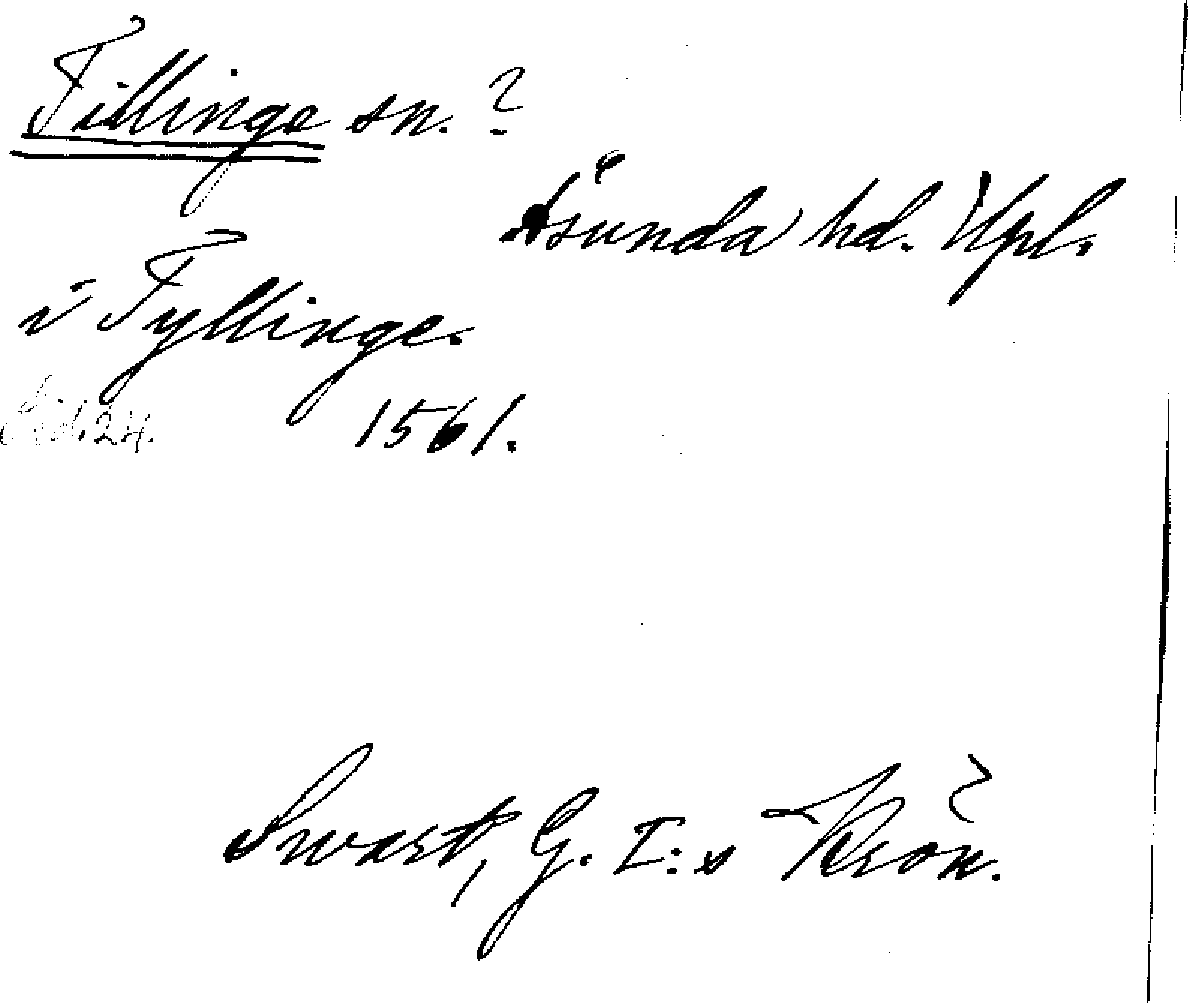 Fillinge sn.?
Åsunda hd. Upl.
i Fyllinge.
Sid. 24. 1561.
Swart, G. I:s Krön.